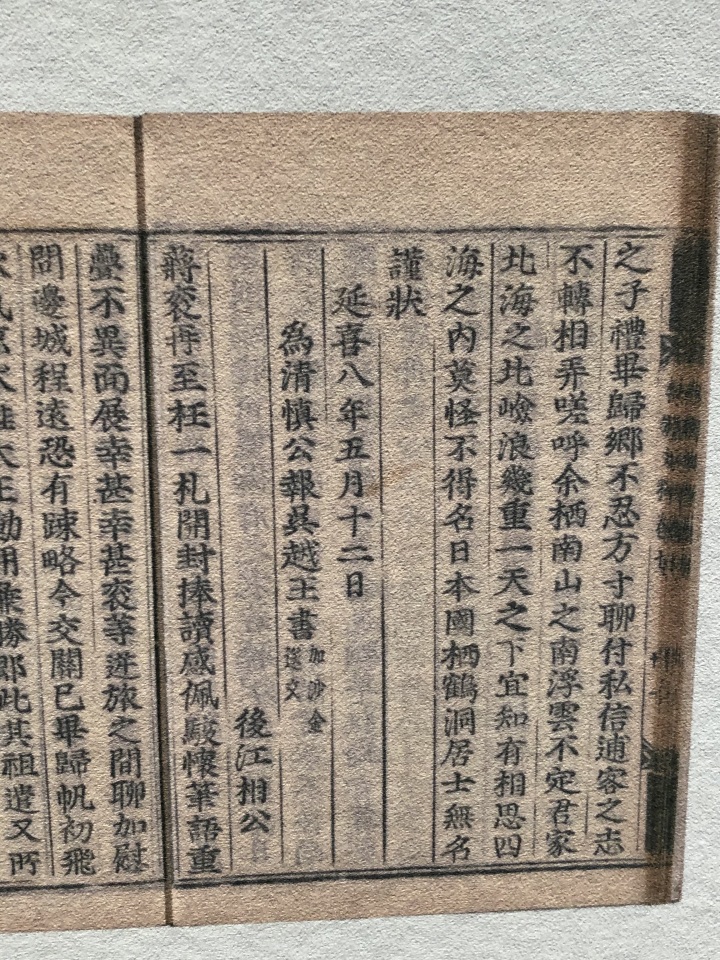 之子禮畢歸鄉不忍方寸聊付私信逋客之志
不轉相弄嗟呼余栖南山之南浮雲不定君家
北海之北嶮浪幾重一天之下宜知有相思四
海之內莫怪不得名日本國栖鶴洞居士無名
謹狀
延喜八年五月十二日
為清慎公報吳越王書加沙金送文
後江相公
蔣袞再至枉一札開封捧讀感佩駭懷筆語重
疊不異面展幸甚幸甚袞等逆旅之間聊加慰
問邊城程遠恐有踈略今交關已畢歸帆初飛
勝即此其祖遣又所